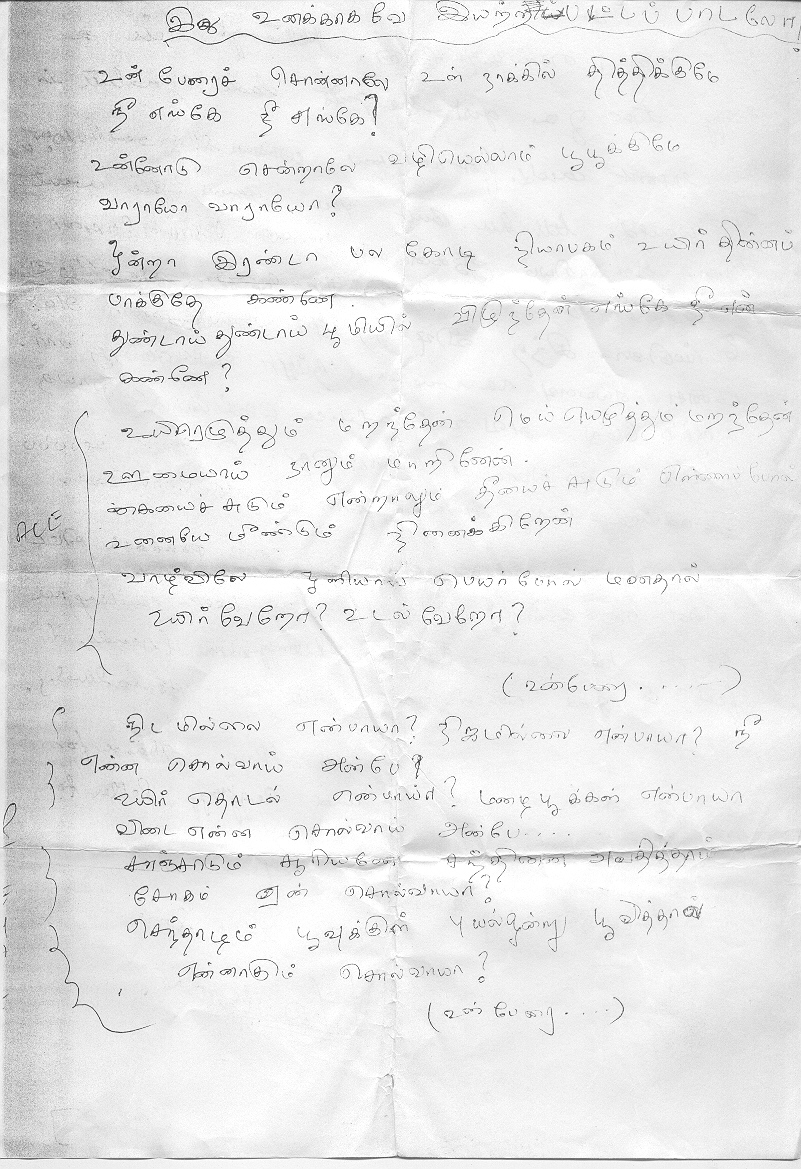 இது உனக்காகவே இயற்றப்பட்டப் பாடலோ!
உன் பேரைச் சொன்னாலே உள் நாக்கில் தித்திக்குமே
நீ எங்கே நீ எங்கே?
உன்னோடு சென்றாலே வழியெல்லாம் பூபூக்குமே
வாராயோ வாராயோ?
ஒன்றா இரண்டா பல கோடி நியாபகம் உயிர் தின்னப்
பாக்குதே கண்ணே.
துண்டாய் துண்டாய் பூமியில் விழுந்தேன் எங்கே நீ என்
கண்ணே?
உயிரெழுத்தும் மறந்தேன் மெய்யெழுத்தும் மறந்தேன்
ஊமையாய் நானும் மாறினேன்.
கையைச் சுடும் என்றாலும் தீயைச் சுடும் என்னைபோல்
உனையே மீண்டும் நினைக்கிறேன்
வாழ்விலே ஒளியாய் பெயர்போல்
உயிர்வேறோ? உடல்வேறோ?
(உன்பேரை.......)
நிடமில்லை என்பாயா? நிஜமில்லை என்பாயா? நீ
என்ன சொல்வாய் அன்பே?
உயிர் தொடல் என்பாயா? பூக்கள் என்பாயா
விடை என்ன சொல்வாய் அன்பே....
சாஞ்சாடும் சூரியனே சந்திரனை
சோகம் ஏன் சொல்வாயா?
செந்தாழம் பூவுக்குள் புயலொன்று பூவித்தால்
என்னாகும் சொல்வாயா?
(உன் பேரை.....)